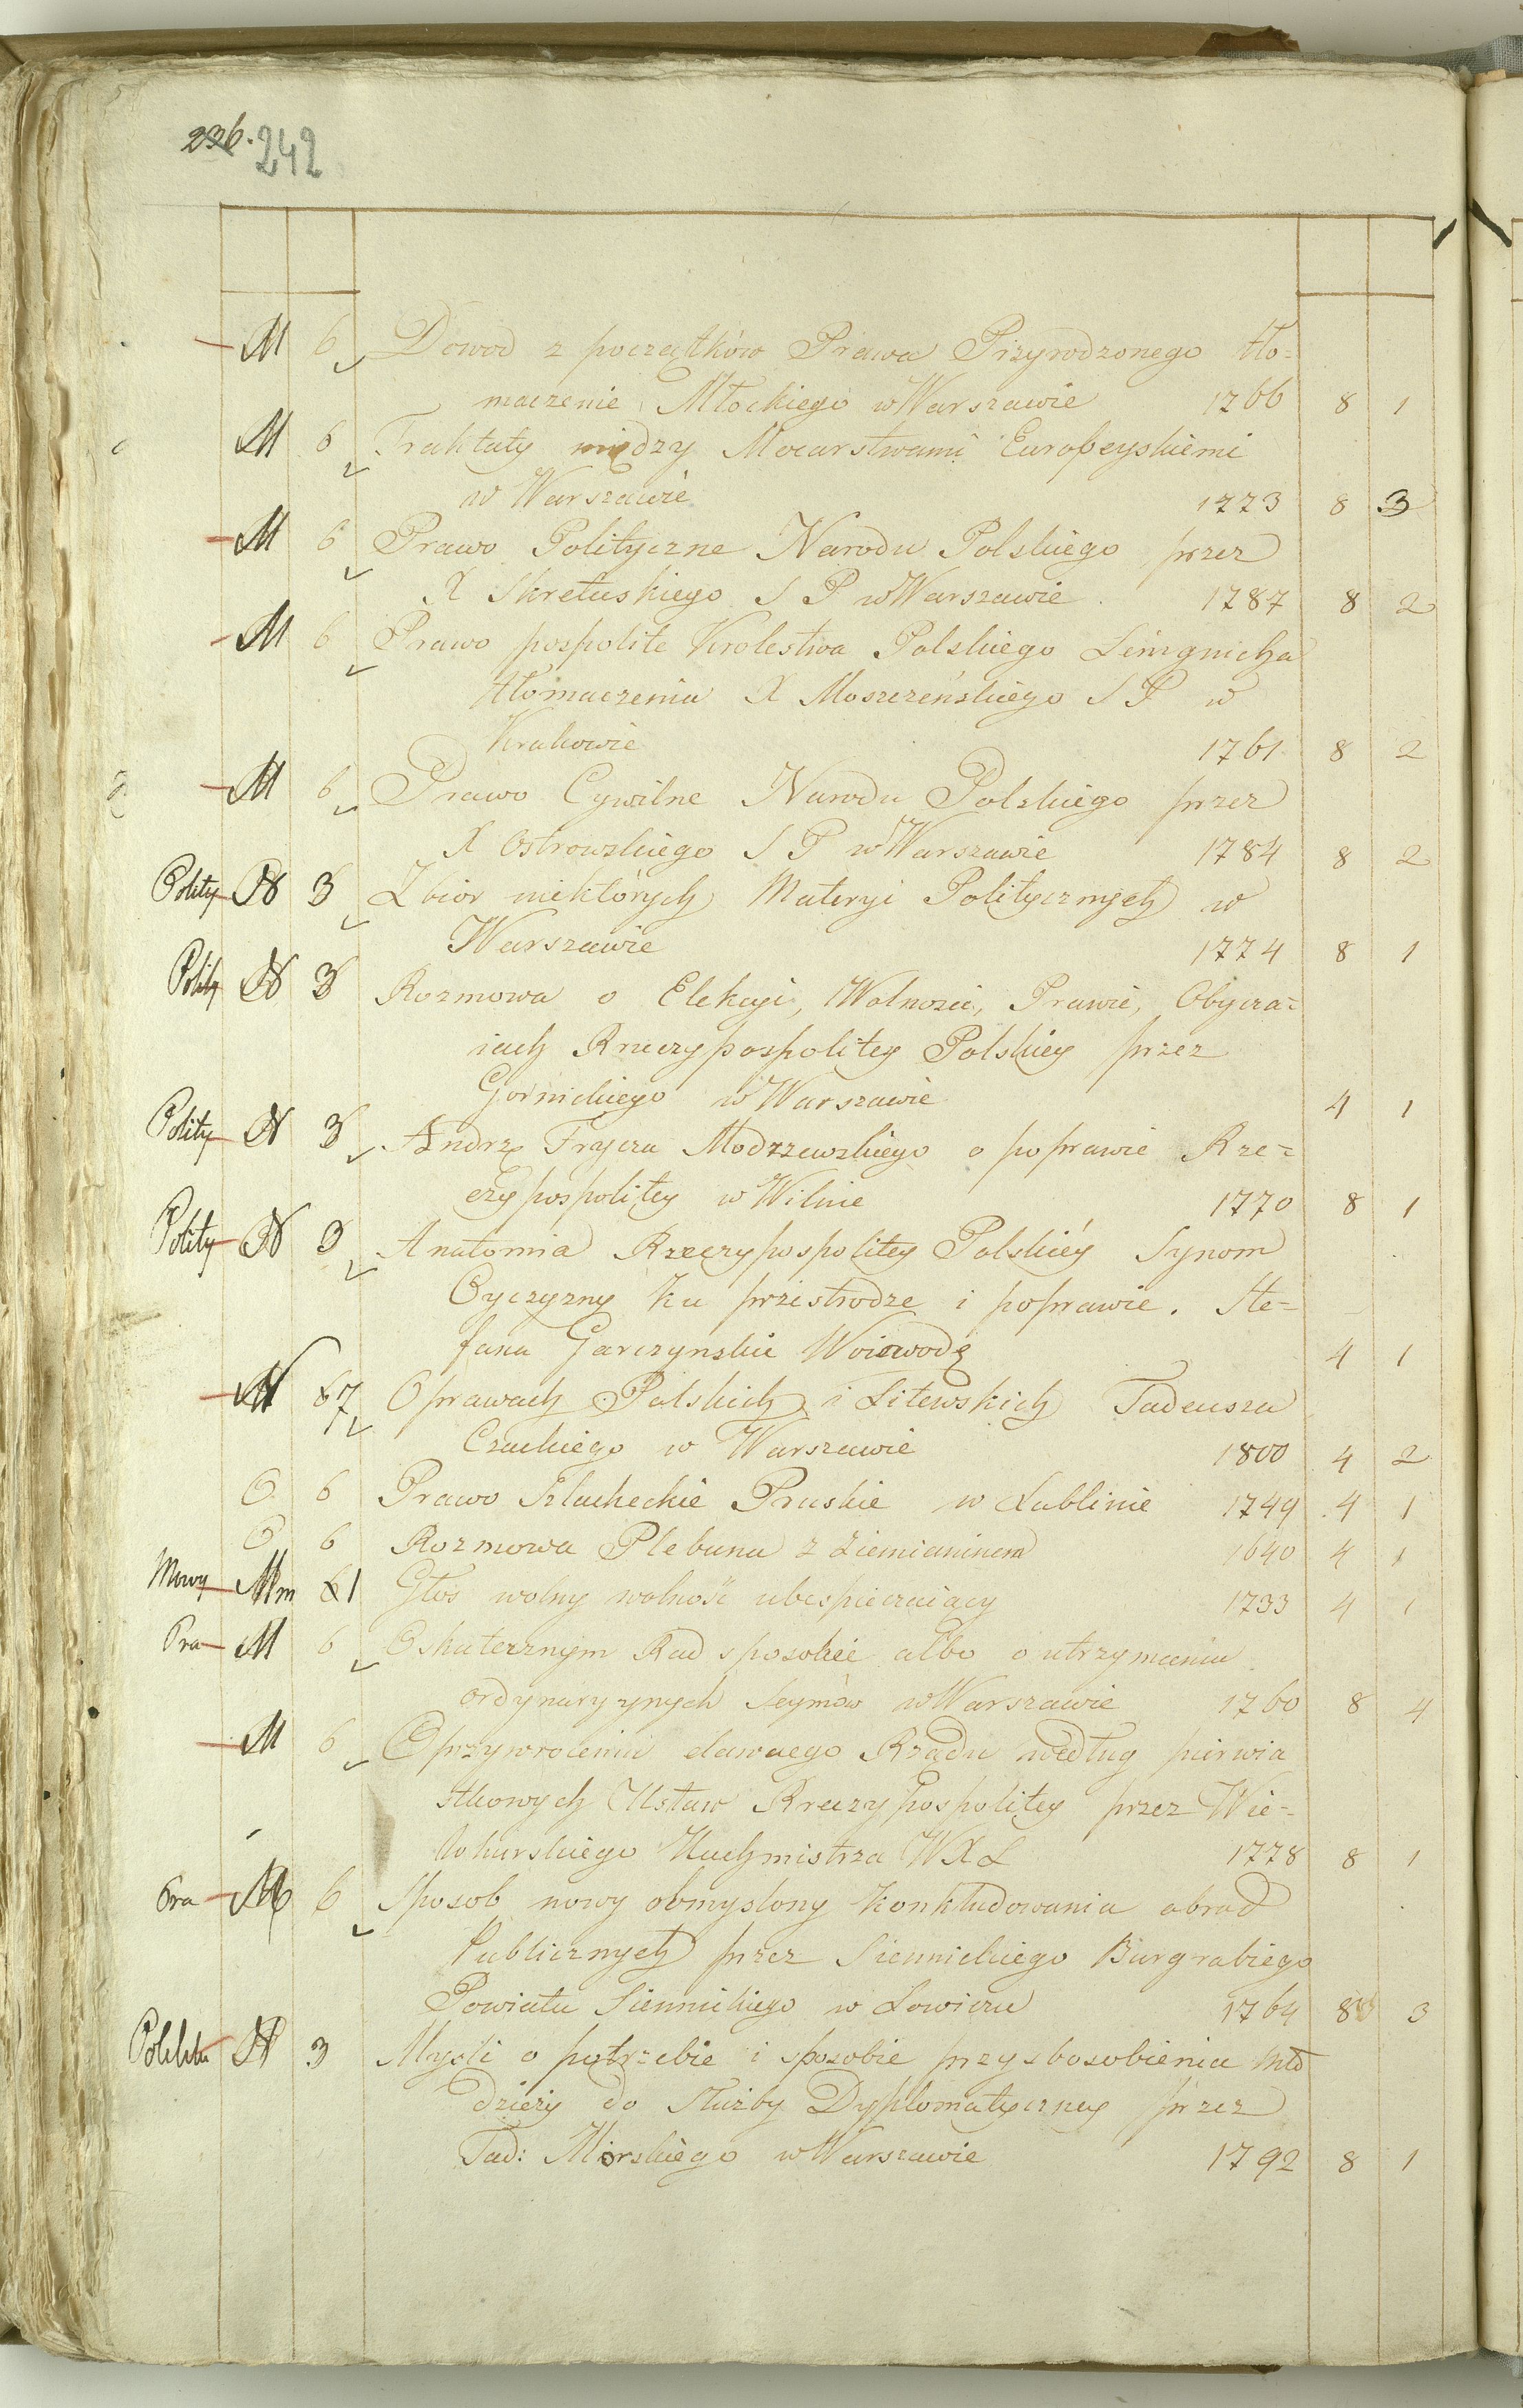 236. 242
M 6 Dowod z początków Prawa Przyrodzonego tło=
maczenie Młockiego w Warszawie 1766 8 1
M 6 Traktaty między Mocarstwami Europeyskiemi
w Warszawie 1773 8 3
M 6 Prawo Polityczne Narodu Polskiego przez
X Skretuskiego S P w Warszawie 1787 8 2
M 6 Prawo pospolite Krolestwa Polskiego Lengnicha
tłomaczenia X Moszczeńskiego S P w
Krakowie 1761 8 2
M 6 Prawo Cywilne Narodu Polskiego przez
X Ostrowskiego S P w Warszawie 1784 8 2
Polity N 3 Zbior niektórych Materyi Politycznych w
Warszawie 1774 8 1
Polity N 3 Rozmowa o Elekcyi, Wolności, Prawie, Obycza=
iach Rzeczypospolitey Polskiey przez
Gornickiego w Warszawie 4 1
Polity N 3 Andrz Frycza Modrzewskiego o poprawie Rze=
czypospolitey w Wilnie 1770 8 1
Polity N 3 Anatomia Rzeczypospolitey Polskiéy Synom
Oyczyzny ku przestrodze i poprawie. Ste=
fana Garczynskie Woiewodę 4 1
N 7 O prawach Polskich i Litewskich Tadeusza
Czackiego w Warszawie 1800 4 2
O 6 Prawo Szlacheckie Pruskie w Lublinie 1749 4 1
O 6 Rozmowa Plebana z Ziemianinem 1640 4 1
Mowy Mm 1 Głos wolny wolność ubespieczaiący 1733 4 1
Pra M 6 O skutecznym Rad sposobie albo o utrzymaniu
ordynaryynych Seymów w Warszawie 1760 8 4
M 6 O przywroceniu dawnego Rządu według pierwia
stkowych Ustaw Rzeczypospolitey przez Wie=
lohurskiego Kuchmistrza W X L 1778 8 1
Pra M 6 Sposob nowy obmyslony konkludowania obrad
Publicznych przez Siennickiego Burgrabiego
Powiatu Siennickiego w Łowiczu 1764 8 3
N 3 Mysli o potrzebie i sposobie przysposobienia Mło
dzieży do Służby Dyplomatyczney przez
Tad: Morskiego w Warszawie 1792 8 1